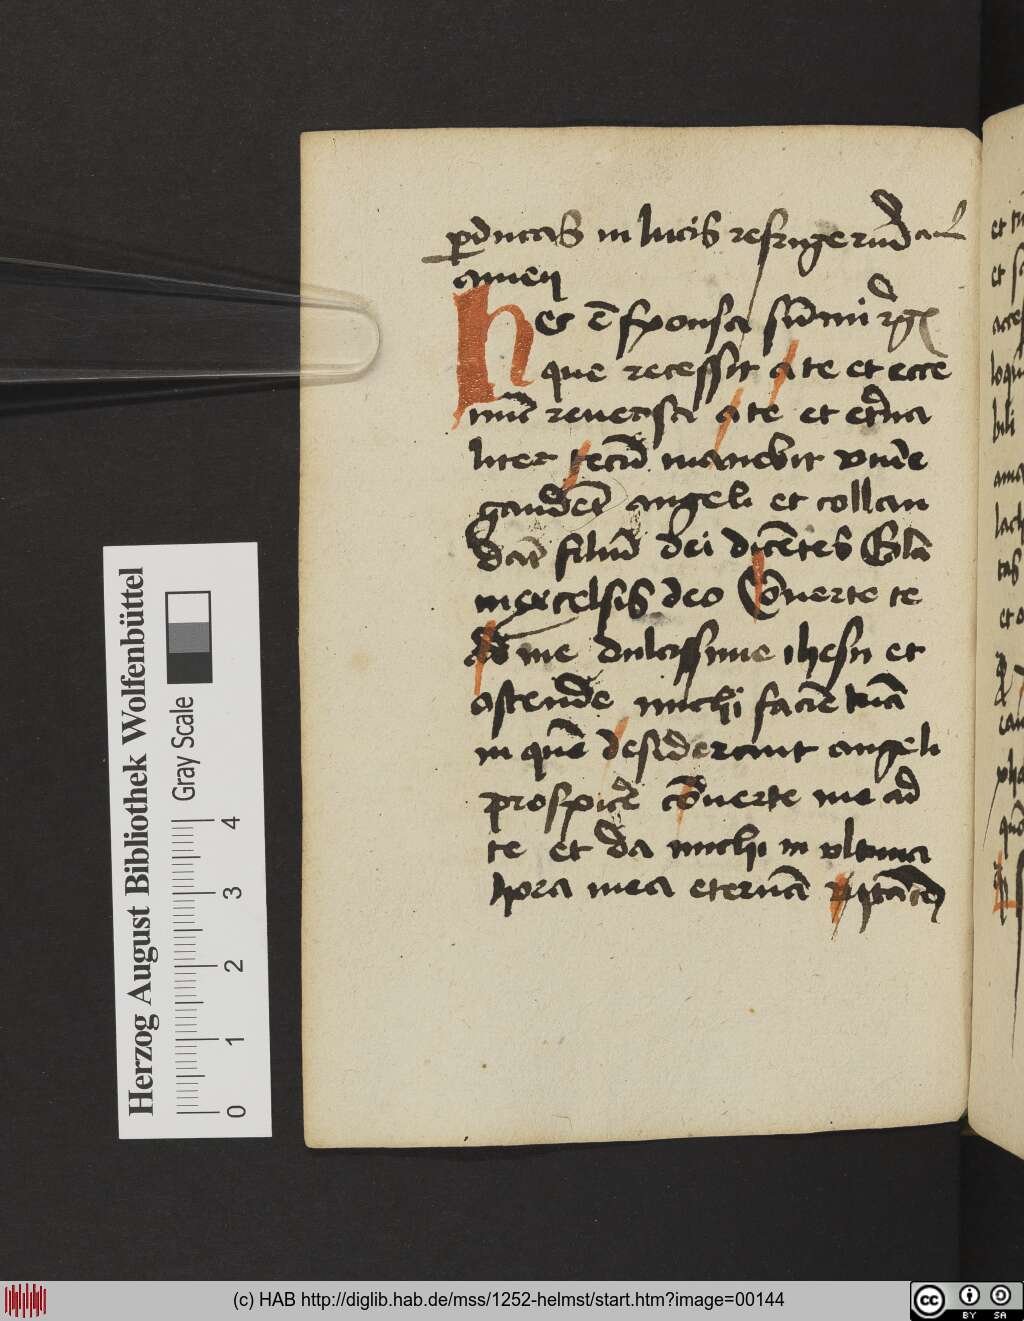 pducas in lucis refrigeriũ
amen
Hec ẽ sponsa sũmi regꝭ
que recessit a te et ecce
nũc reuersa a te et et̾na
liter tecũ manebit vnde
gaudẽt angeli et collau
dãt filiũ dei dicẽtes Glã
in excelsis deo Cõuerte te
ad me dulcissime ihesu et
ostende michi faciẽ tuã
in quẽ desiderant angeli
prospice̾ cõuerte me ad
te et da michi in vltima
hora mea eternã
et
et
Herzog August Bibliothek Wolfenbüttel
Gray Scale
0 1 2 3 4
(c) HAB http://diglib.hab.de/mss/1252-helmst/start.htm?image=00144
cc BY SA